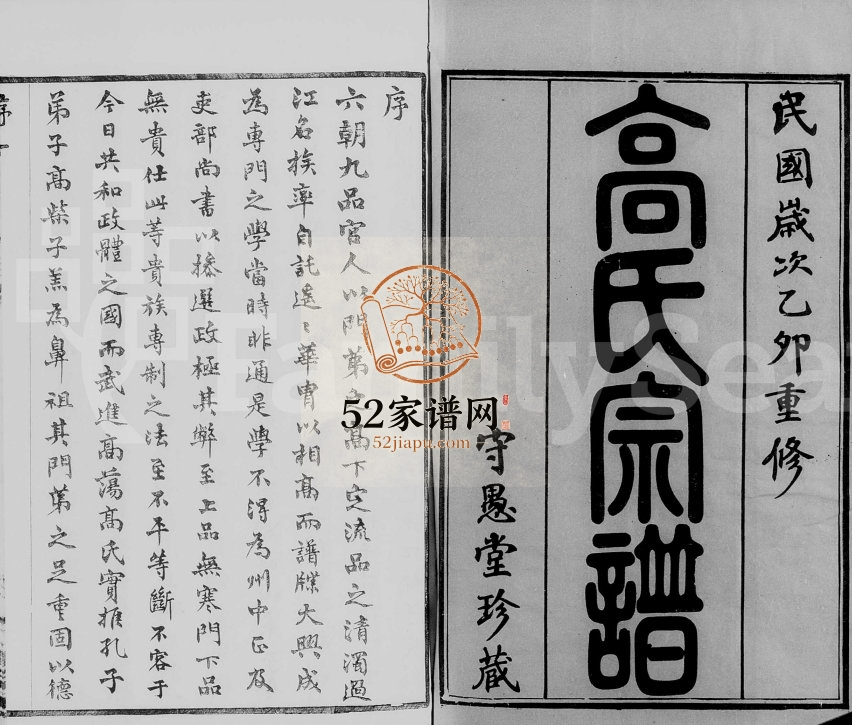 民國歲次乙卯重修
高氏宗譜
守愚堂珍藏
序
六朝九品官人以門第之高下定流品之清濁過
江名族率自託遠〻華冑以相高而譜牒大興成
為專門之學當時非通是學不得為州中正及
吏部尚書以掺選政極其弊至上品無寒門下品
無貴仕此等貴族專制之法至不平等斷不容于
今日共和政體之國而武進高蕩高氏實推孔子
弟子高柴子羔為鼻祖其門第之足重固以德
序
52家谱网
52jiapu.com
FamilySea